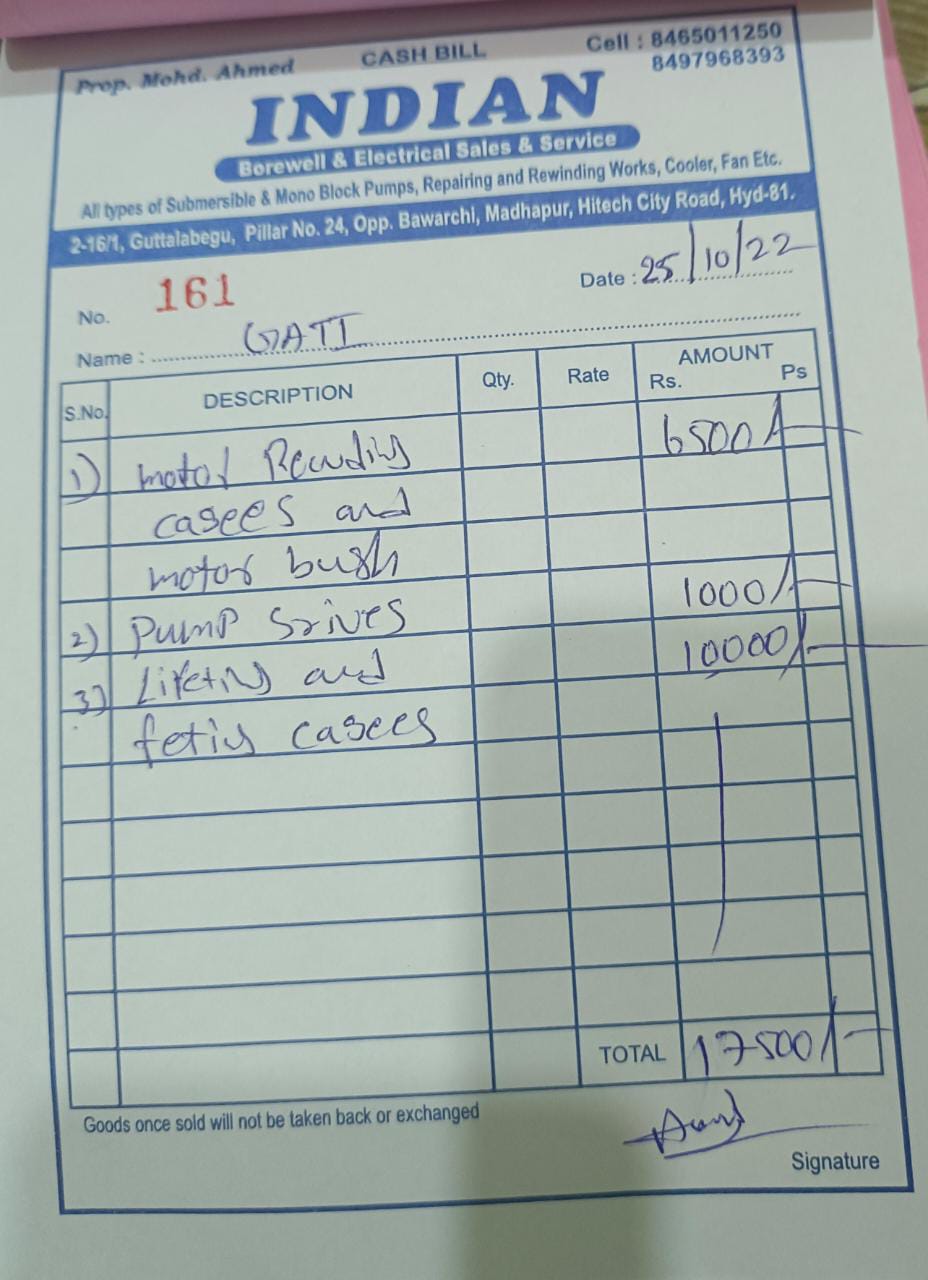 Prop. Mohd. Ahmed CASH BILL Cell : 8465011250
8497968393
INDIAN
Borewell & Electrical Sales & Service
All types of Submersible & Mono Block Pumps, Repairing and Rewinding Works, Cooler, Fan Etc.
2-16/1, Guttalabegu, Pillar No. 24, Opp. Bawarchi, Madhapur, Hitech City Road, Hyd-81.
No. 161 Date : 25/10/22
Name : GATI
S.No. DESCRIPTION Qty. Rate AMOUNT
Rs. Ps
1) motor 6500/-
casees and
motor bush
2) Pump Srives 1000/-
3) Lifeting and 10000/-
feting casees
TOTAL 17500/-
Goods once sold will not be taken back or exchanged
Signature